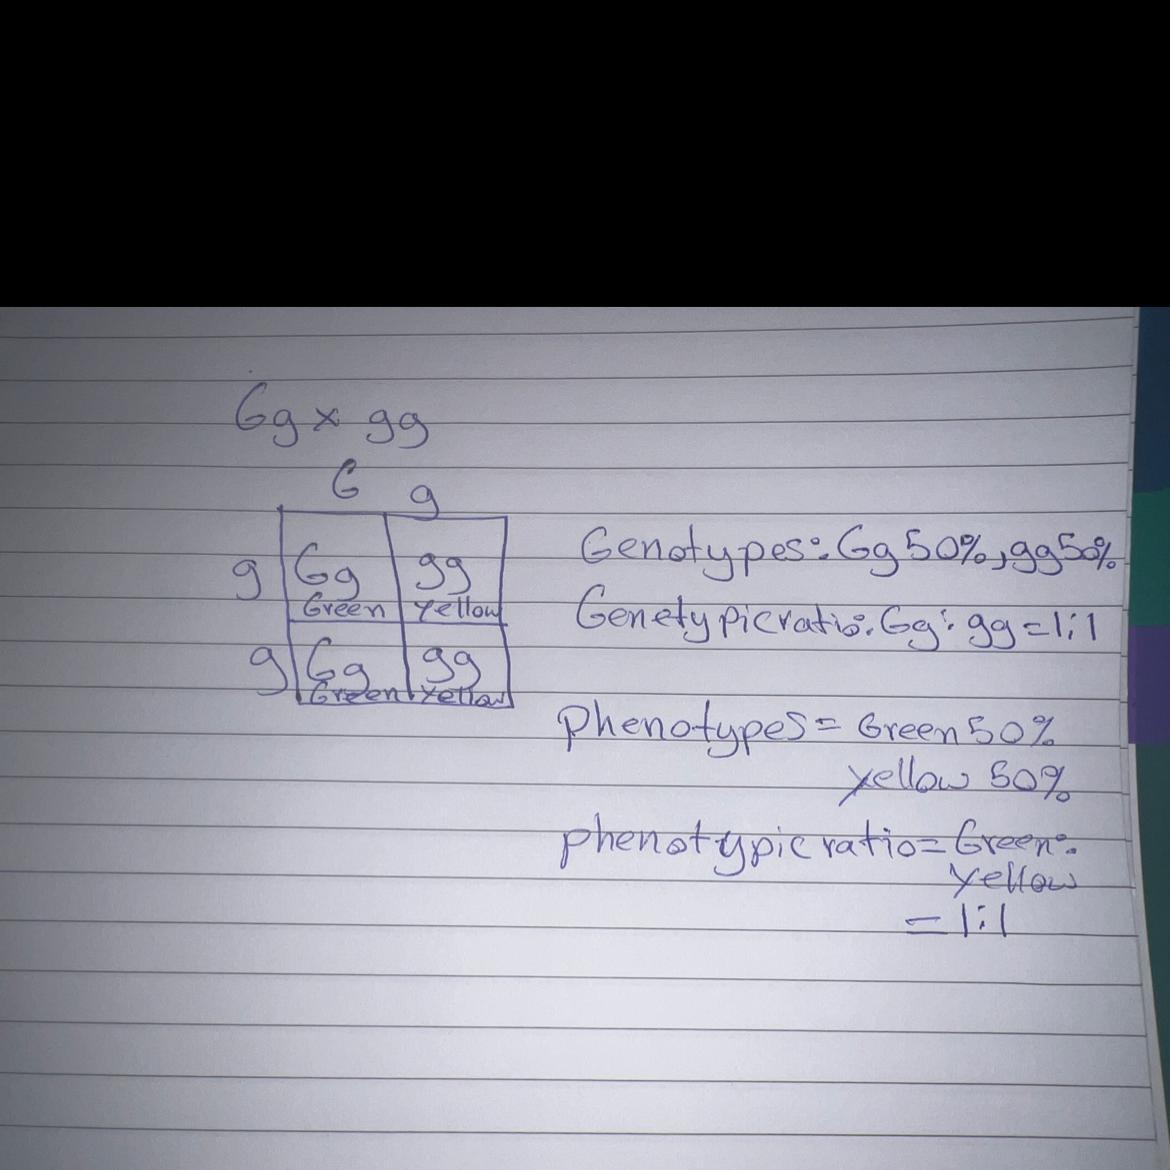 Gg x gg
G g
g Gg gg
Green Yellow
g Gg gg
Green Yellow
Genotypes: Gg 50%, gg 50%
Genetypic ratio: Gg : gg = 1:1
Phenotypes = Green 50%
yellow 50%
phenotypic ratio = Green:
Yellow
= 1:1